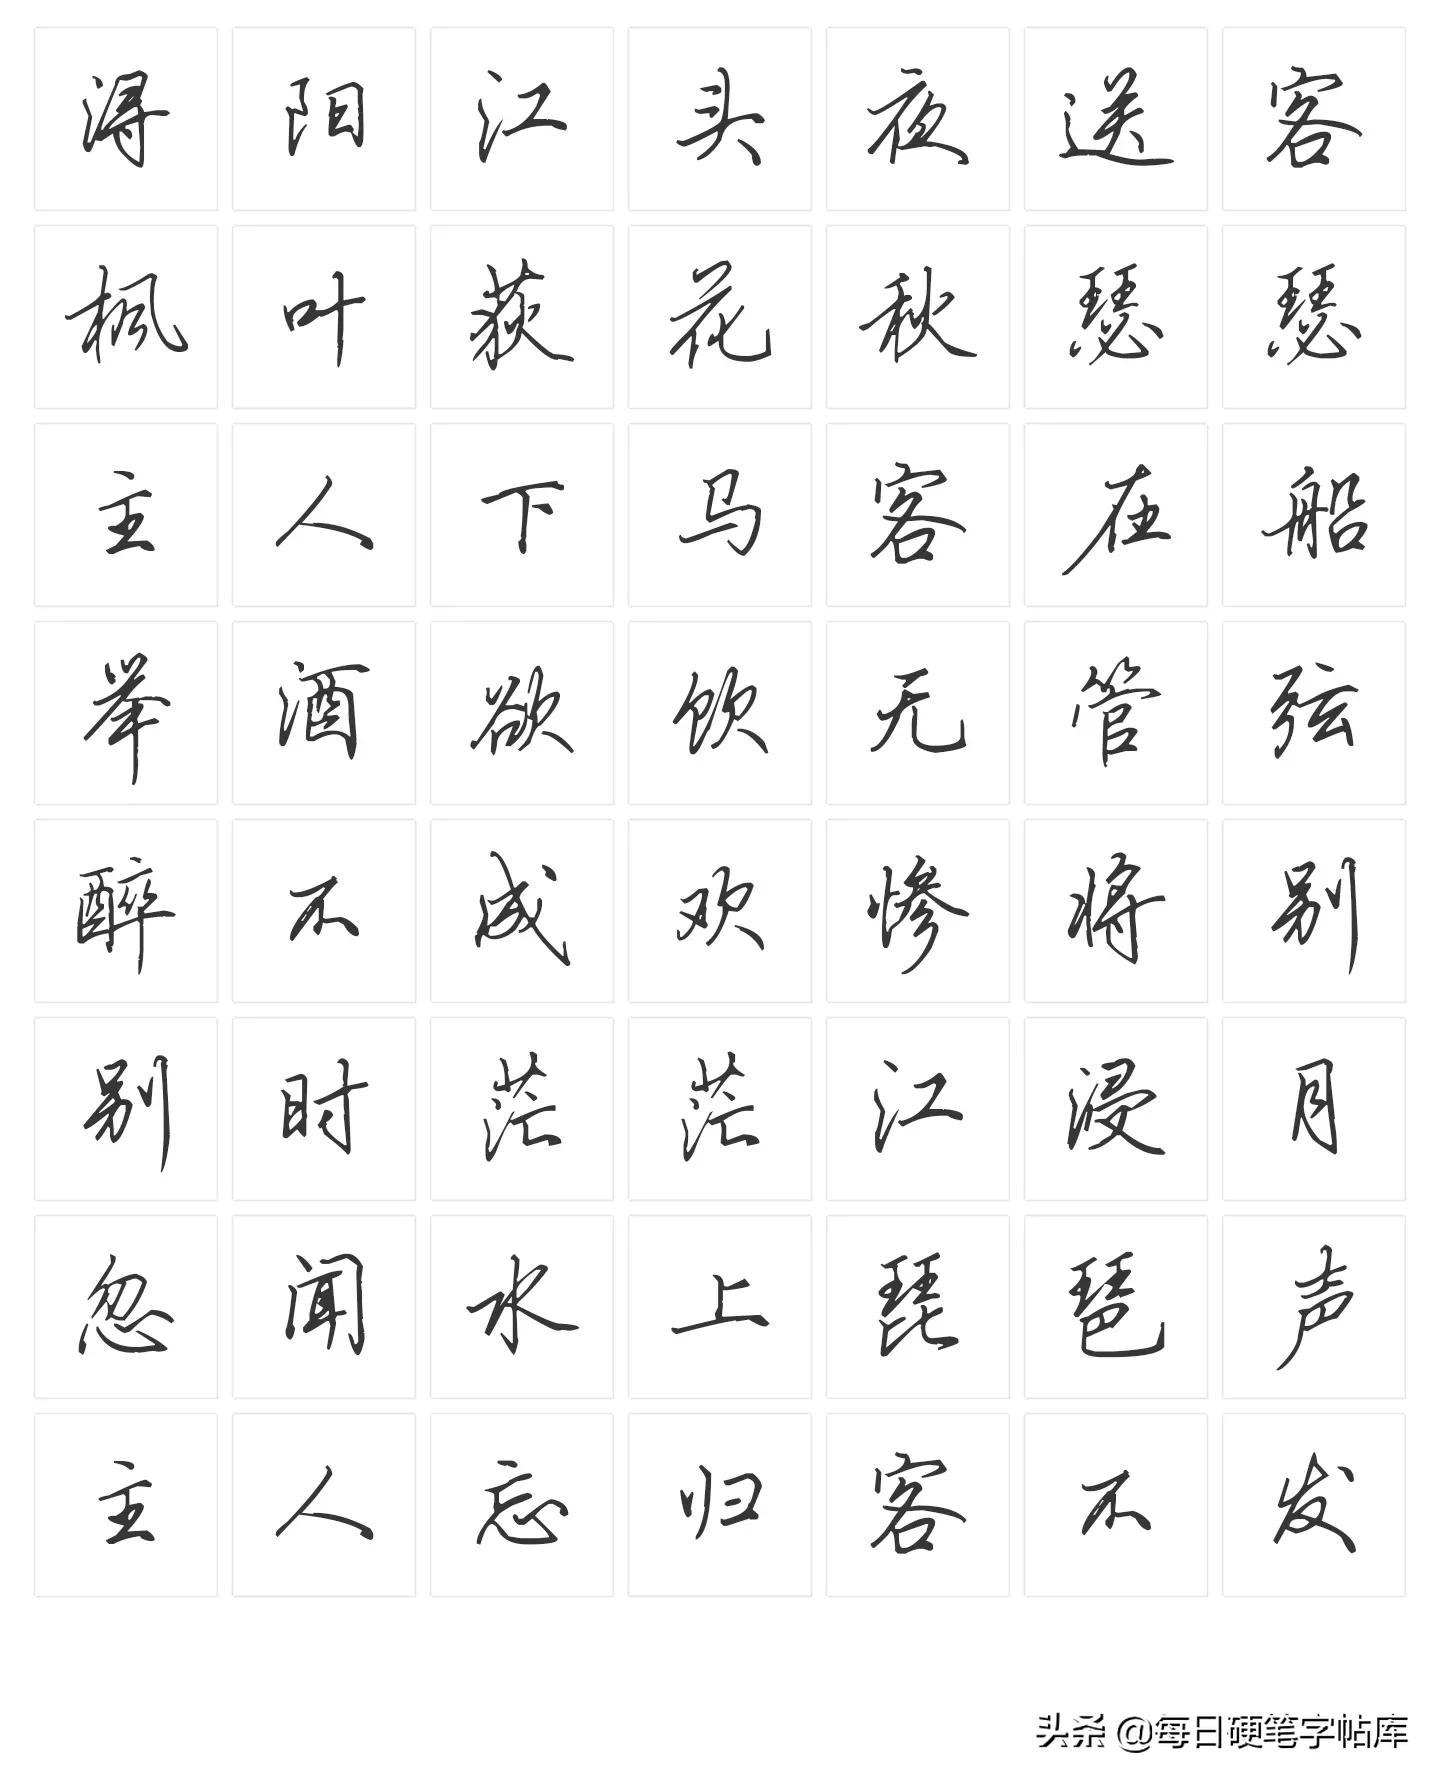 浔阳江头夜送客
枫叶荻花秋瑟瑟
主人下马客在船
举酒欲饮无管弦
醉不成欢惨将别
别时茫茫江浸月
忽闻水上琵琶声
主人忘归客不发
头条 @每日硬笔字帖库